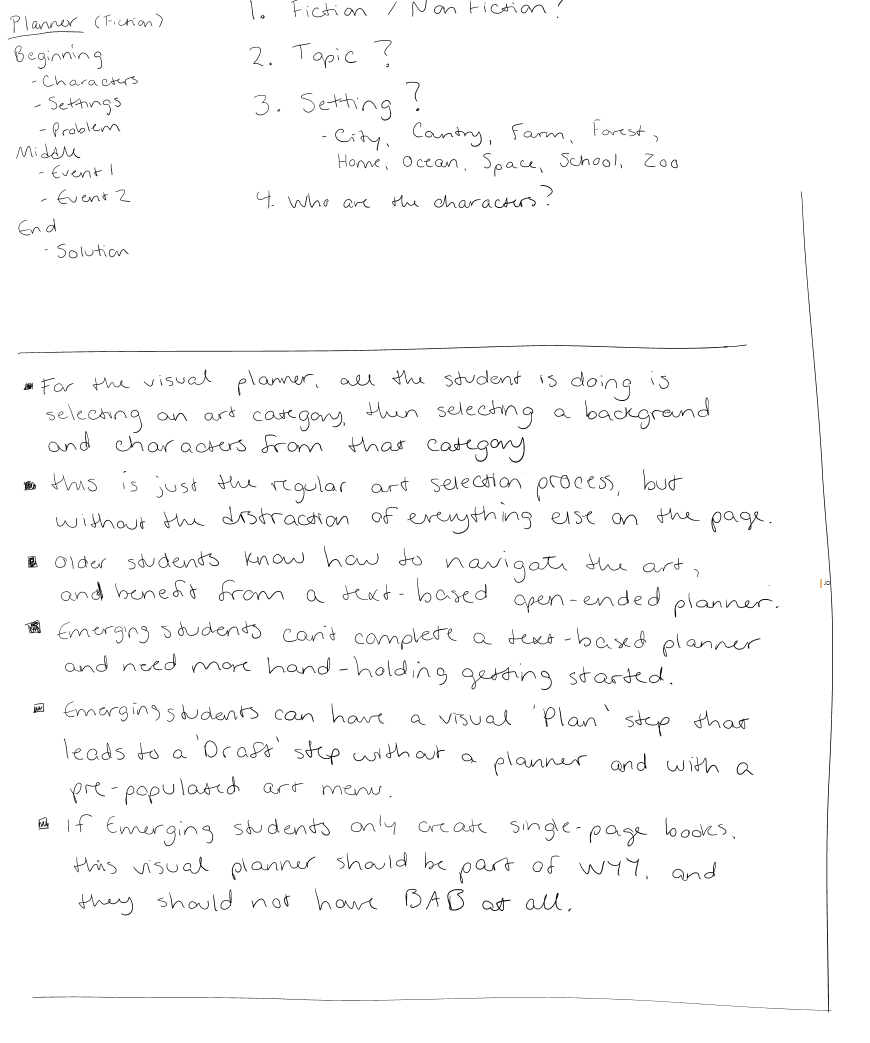 Planner (Fiction)
Beginning
- Characters
- Settings
- Problem
Middle
- Event 1
- Event 2
End
- Solution
1. Fiction / Non Fiction?
2. Topic ?
3. Setting ?
- City, Country, Farm, Forest,
Home, Ocean, Space, School, Zoo
4. Who are the characters?
▪ For the visual planner, all the student is doing is
selecting an art category, then selecting a background
and characters from that category
▪ this is just the regular art selection process, but
without the distraction of everything else on the page.
▪ Older students know how to navigate the art,
and benefit from a text-based open-ended planner.
▪ Emerging students can't complete a text-based planner
and need more hand-holding getting started.
▪ Emerging students can have a visual 'Plan' step that
leads to a 'Draft' step without a planner and with a
pre-populated art menu.
▪ If Emerging students only create single-page books,
this visual planner should be part of WYY, and
they should not have BAB at all.